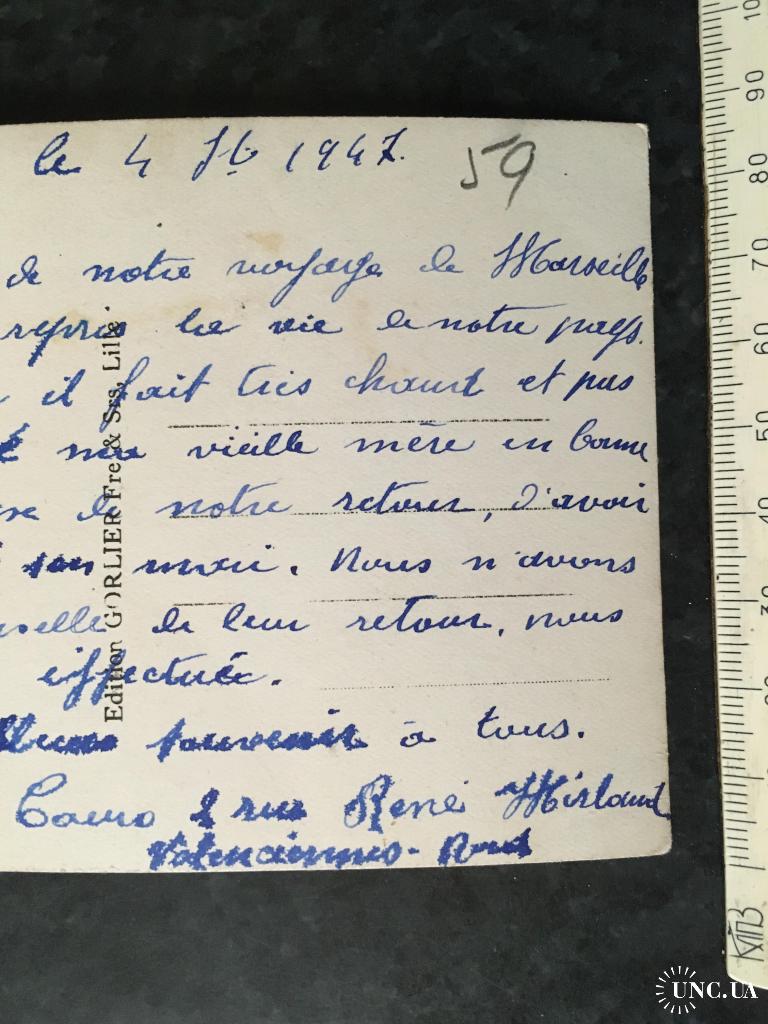 le 4 1947.
59
de notre voyage de Marseille
repris la vie de notre pays.
il fait très chaud et pas
ma vieille mère en bonne
de notre retour, d'avoir
son mari. Nous n'avons
de leur retour, nous
effectué.
souvenir à tous.
2 rue René Mirland
Valenciennes - Nord
Edition GORLIER Fre & Srs, Lille.
10
90
80
70
60
50
40
30
UNC.UA